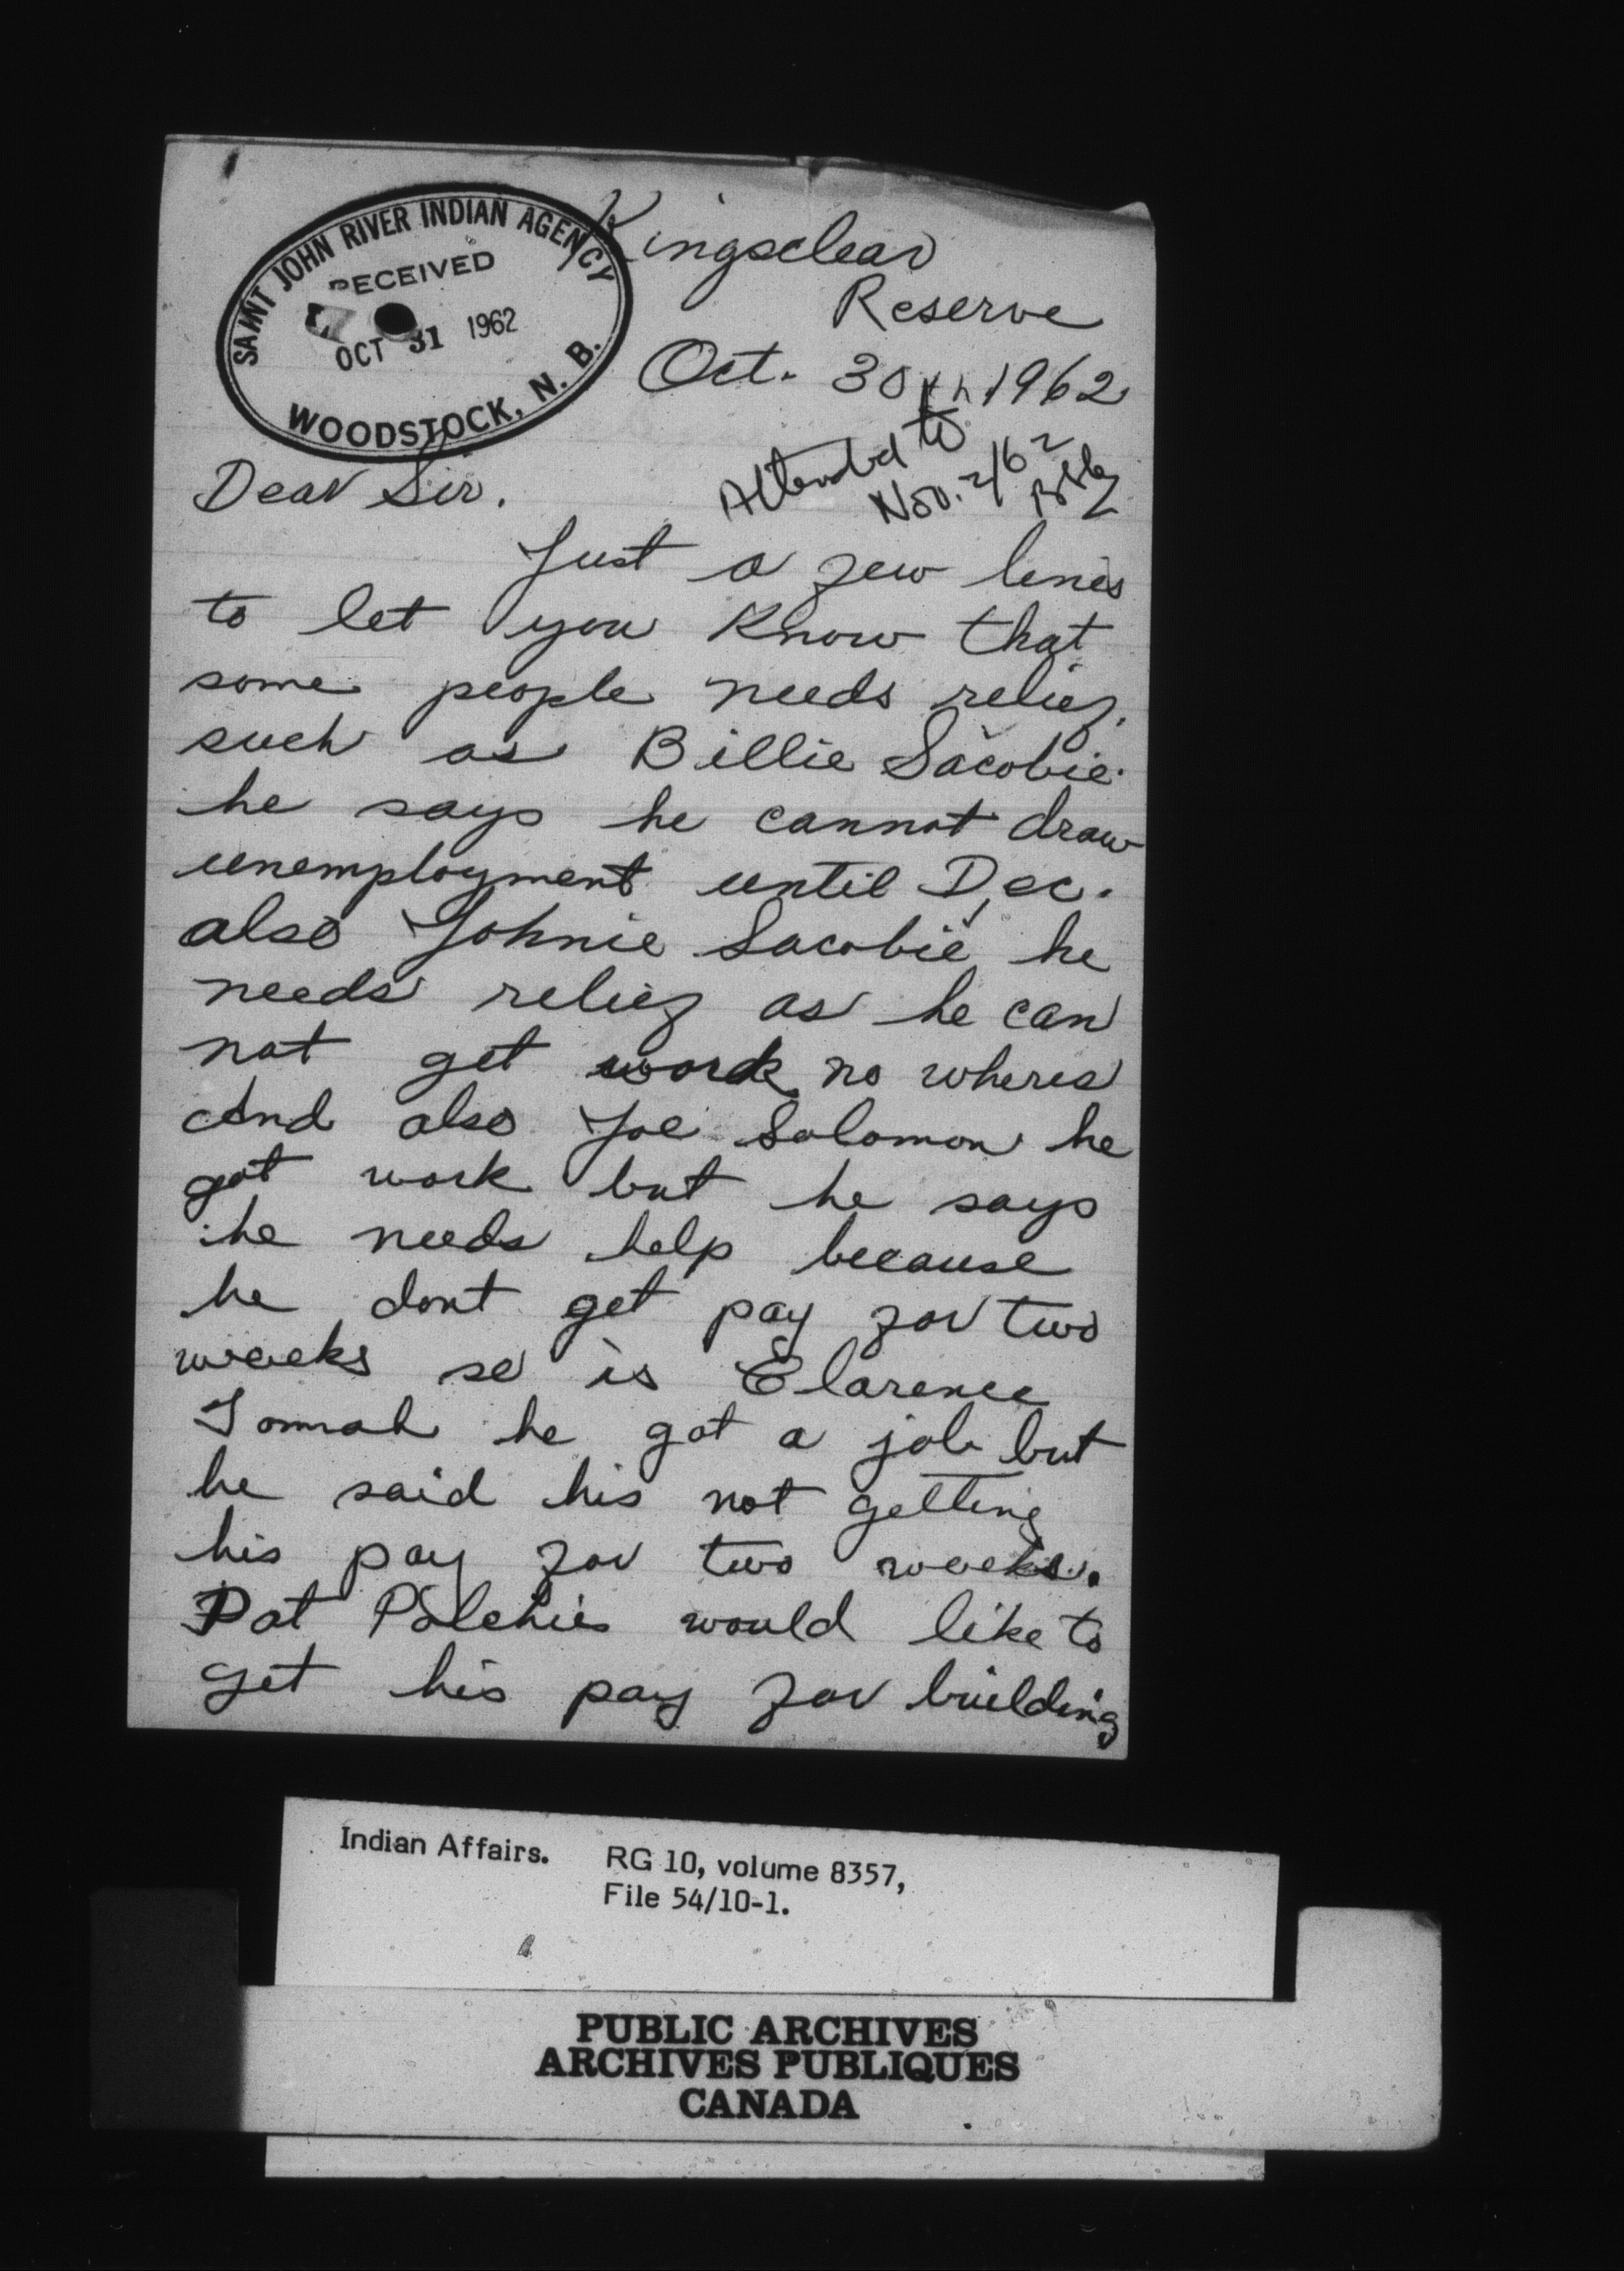 SAINT JOHN RIVER INDIAN AGENCY
RECEIVED
OCT 31 1962
WOODSTOCK, N. B.
Kingsclear
Reserve
Oct. 30th 1962
Attended to
Nov. 2/62
Dear Sir.
Just a few lines
to let you know that
some people needs relief.
such as Billie Sacobie.
he says he cannot draw
unemployment until Dec.
also Johnie Sacobie he
needs relief as he can
not get work no wheres
And also Joe Solomon he
got work but he says
he needs help because
he dont get pay for two
weeks so is Clarence
Tomah he got a job but
he said his not getting
his pay for two weeks.
Pat Polchies would like to
get his pay for building
Indian Affairs. RG 10, volume 8357,
File 54/10-1.
PUBLIC ARCHIVES
ARCHIVES PUBLIQUES
CANADA